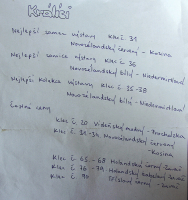 Králíci
Nejlepší samec výstavy Klec č. 31
Novozélandský červený - Kosina
Nejlepší samice výstavy Klec č. 36
Novozélandský bílý -
Nejlepší kolekce výstavy Klec č. 36-38
Novozélandský bílý -
Čestné ceny
Klec č. 20 Vídeňský modrý - Procházka
Klec č. 31-34 Novozélandský červený -
Kosina
Klec č. 65-68 Holandský černý
Klec č. 76-79 Holandský
Klec č. 90 černý -